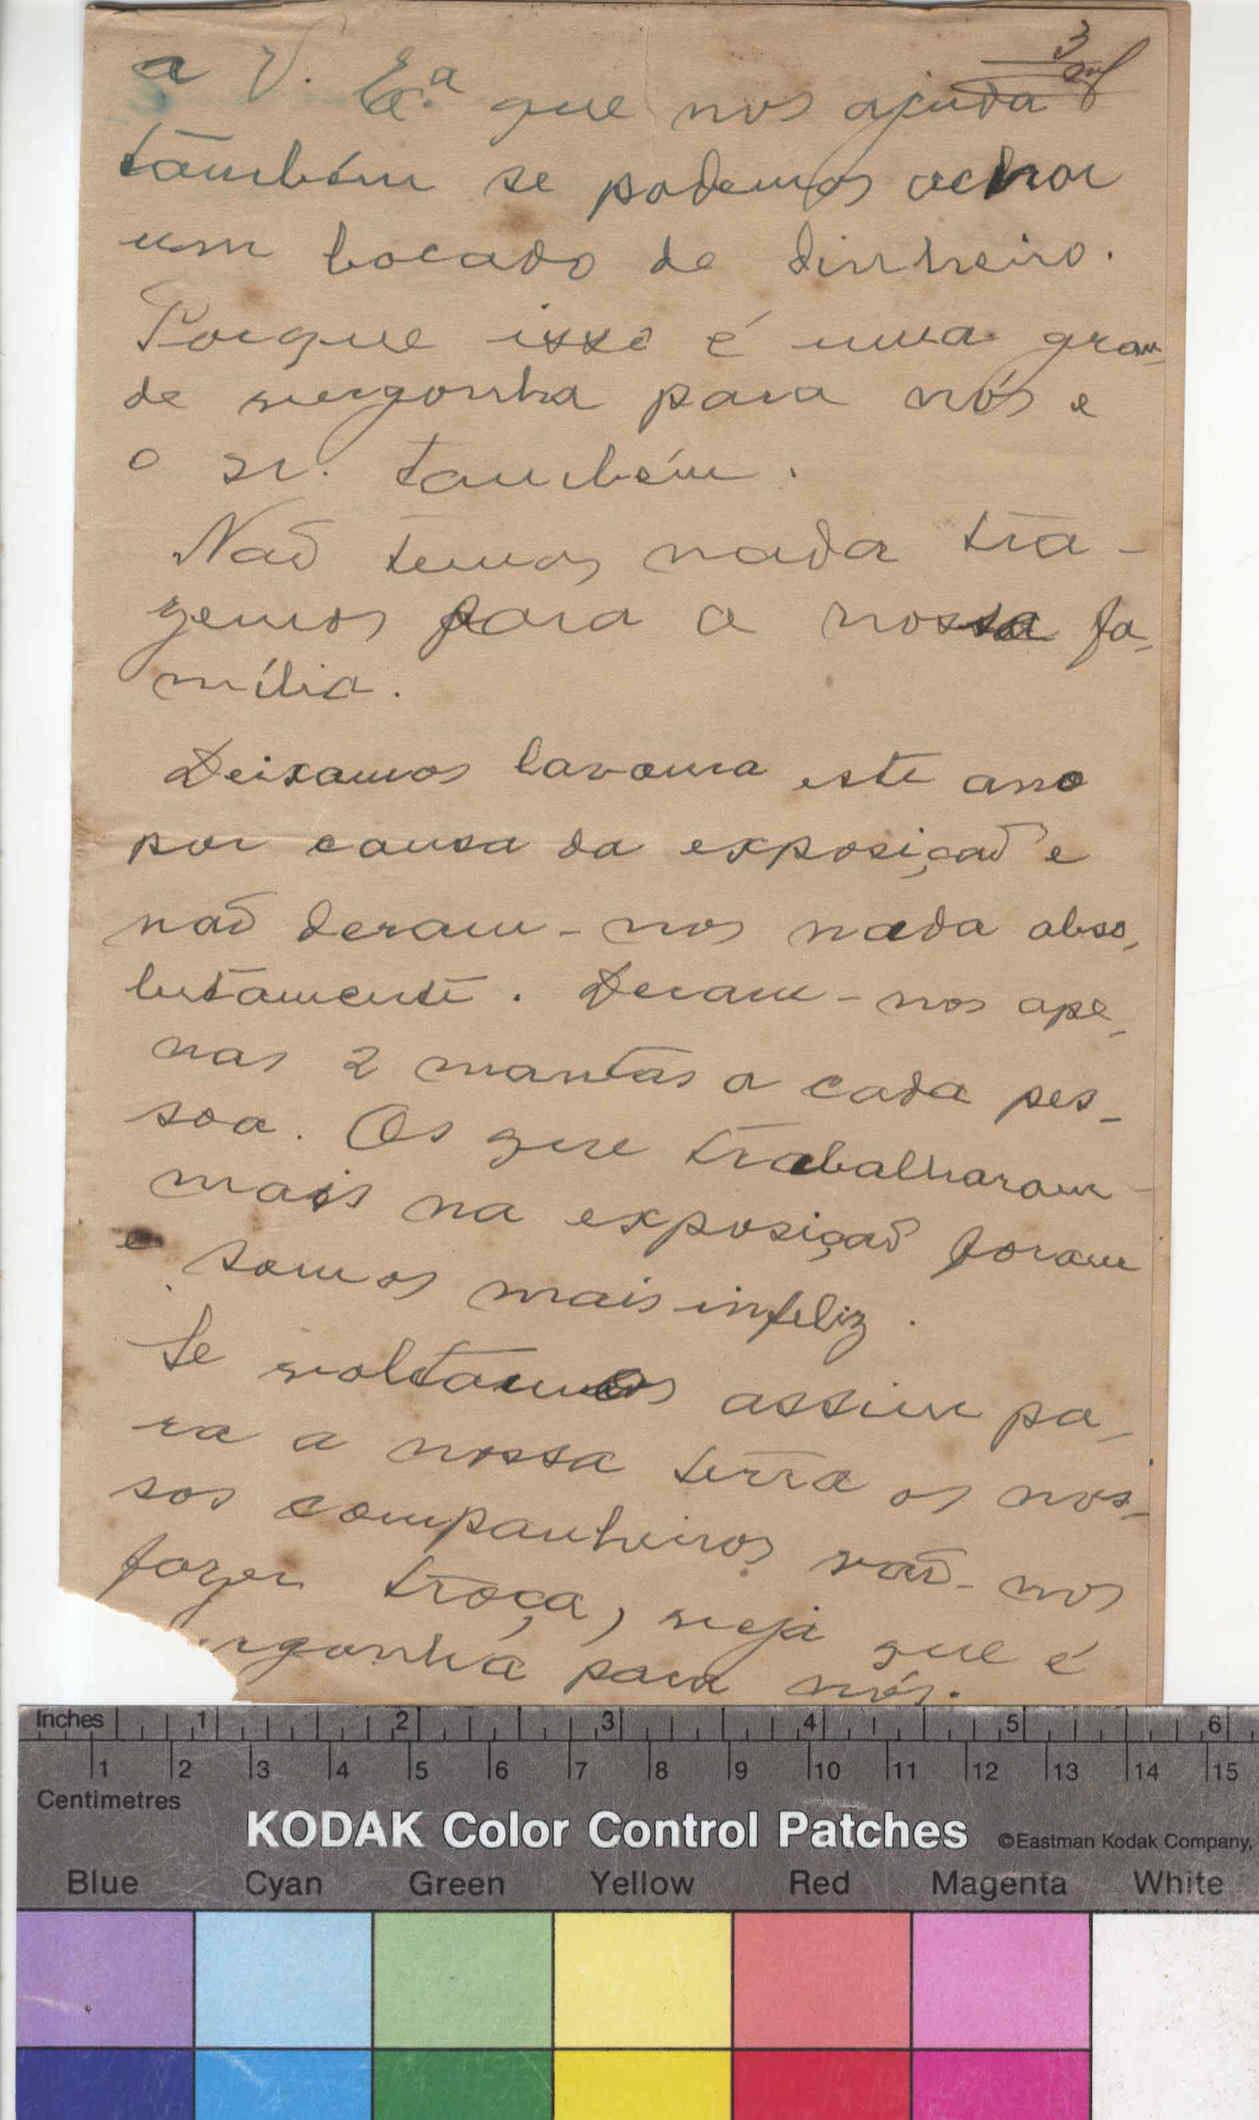 3
a V. Ex.ª que nos ajuda
também se podemos achar
um bocado de dinheiro.
Porque isso é uma gran-
de vergonha para nós e
o sr. também.
Naõ temos nada tra-
zemos para a nossa fa-
mília.
Deixamos lavoura este ano
por causa da exposiçaõ e
naõ deram-nos nada abso-
lutamente. Deram-nos ape-
nas 2 mantas a cada pes-
soa. Os que trabalharam
mais na exposiçaõ foram
e somos mais infeliz.
Se voltamos assim pa-
ra a nossa terra os nos-
sos companheiros vaõ-nos
fazer troça, veja que é
rgonha para nós.
Inches 1 2 3 4 5 6
1 2 3 4 5 6 7 8 9 10 11 12 13 14 15
Centimetres
KODAK Color Control Patches ©Eastman Kodak Company,
Blue Cyan Green Yellow Red Magenta White